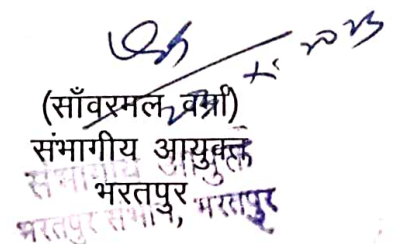 (साँवरमल वर्मा)
संभागीय आयुक्त
भरतपुर
संभागीय आयुक्त
भरतपुर संभाग, भरतपुर